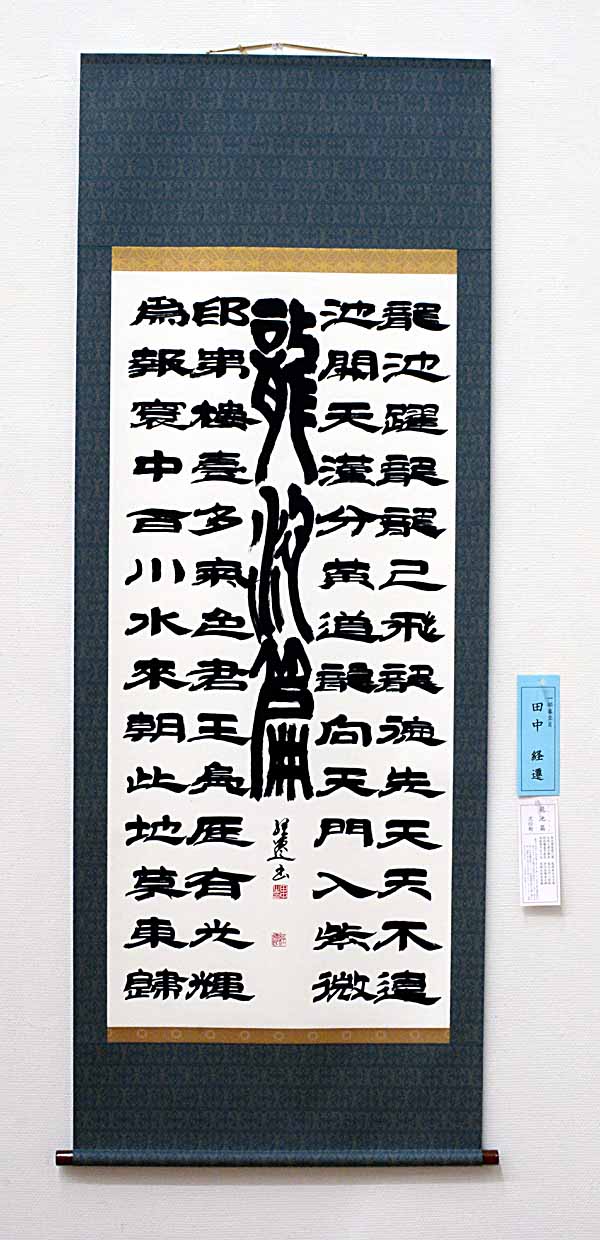 龍池躍龍龍已飛龍德先天天不違
池開天漢分黄道龍向天門入紫微
龍池篇
経遷書
邸第樓臺多氣色君王鳧鴈有光輝
爲報寰中百川水來朝此地莫東歸
田中 経遷
龍池篇
沈佺期